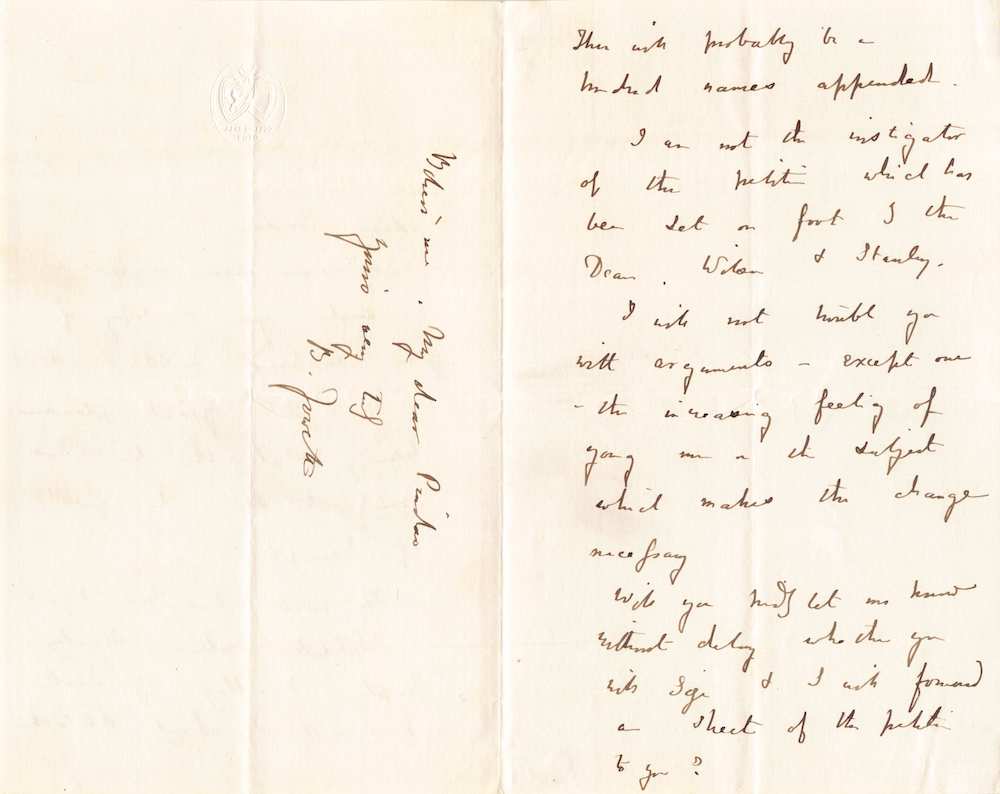 There will probably be a
hundred names appended.
I am not the instigator
of the petition which has
been set on foot by the
Dean, Wilson & Stanley.
I will not trouble you
with arguments – except one
– the increasing feeling of
young men on the subject
which makes the change
necessary
Will you kindly let me know
without delay whether you
will sign & I will forward
a sheet of the petition
to you?
Believe me, My dear
Yours very truly
B. Jowett